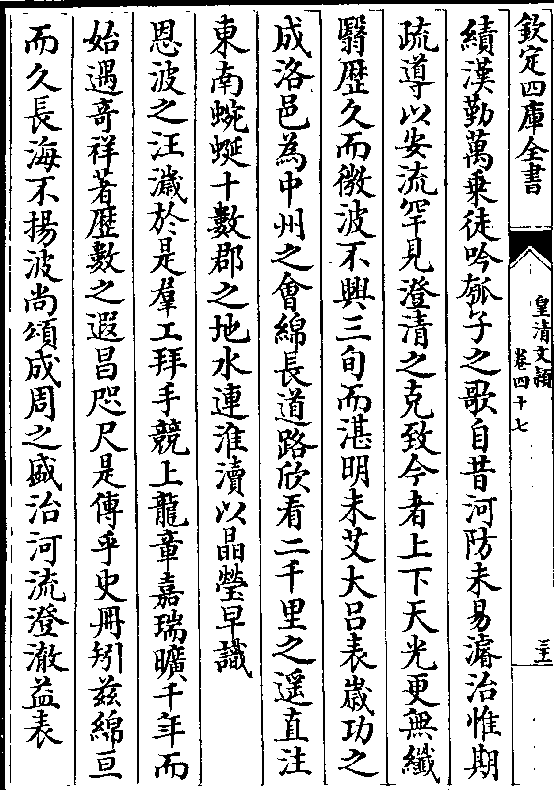 欽定四庫全書
皇清文穎
卷四十七
績漢勤萬乗徒吟瓠子之歌自昔河防未易濬治惟期
疏導以安流罕見澄清之克致今者上下天光更無纖
翳歷久而微波不興三旬而湛明未艾大吕表歲功之
成洛邑為中州之會綿長道路欣看二千里之遥直注
東南蜿蜒十數郡之地水連淮瀆以晶瑩早識
恩波之汪濊於是羣工拜手競上龍章嘉瑞曠千年而
始遇竒祥著歷數之遐昌咫尺是傳乎史冊矧兹綿亘
而久長海不揚波尚頌成周之盛治河流澄澈益表